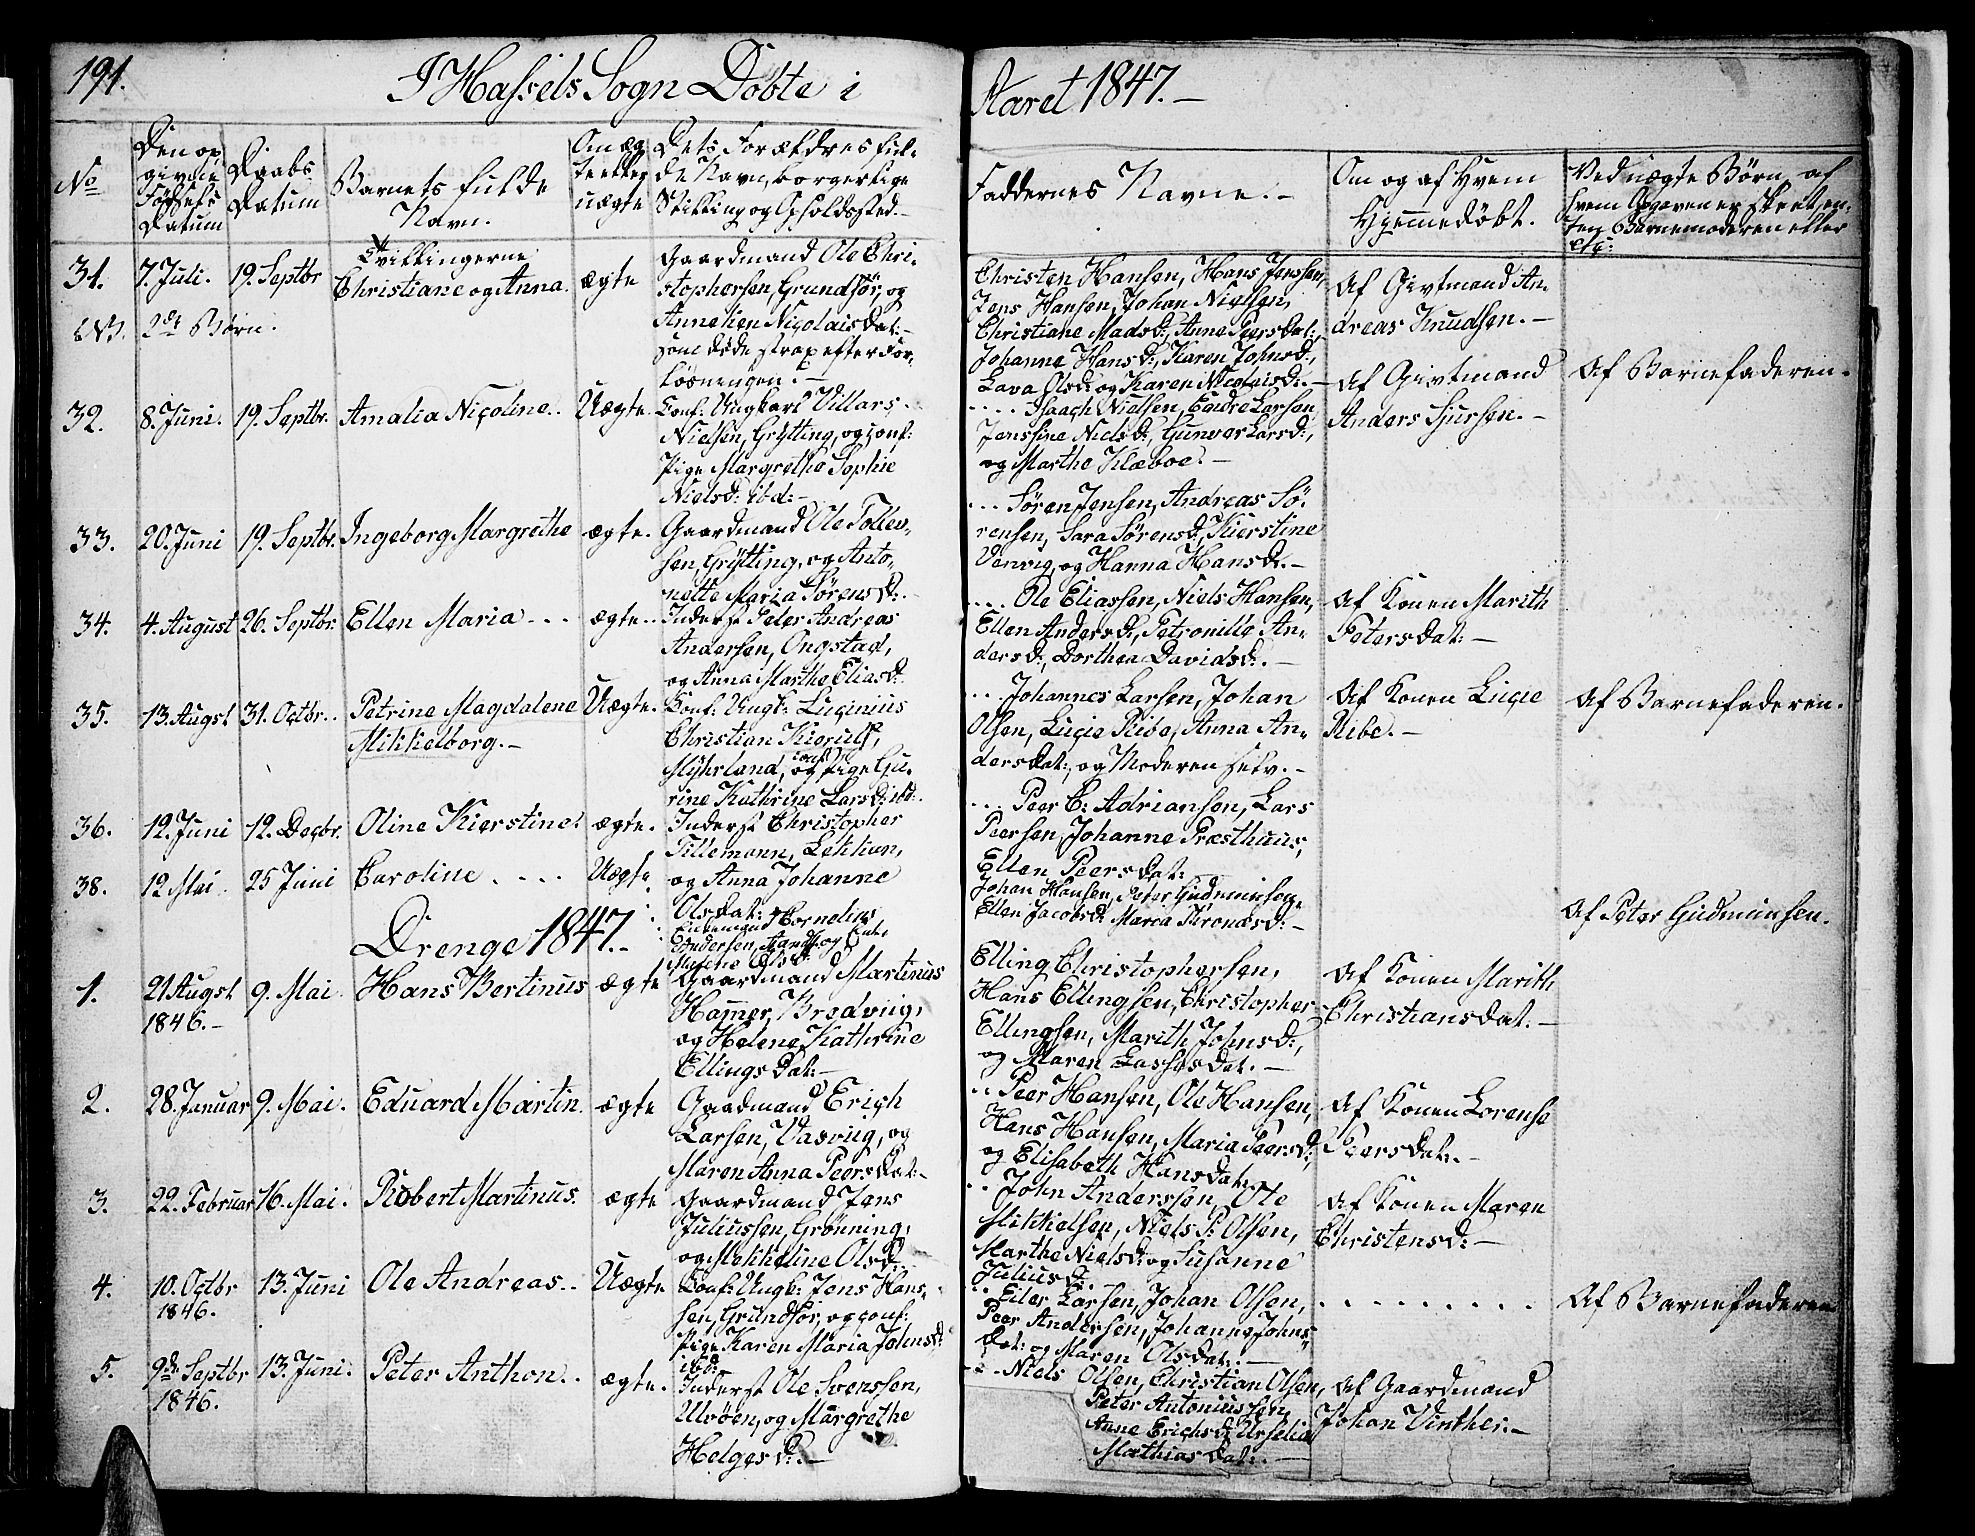 191.
I Hassels Sogn Döbte i
Aaret 1847.-
No
Den op
givne
Födsels
Datum
Daabs
Datum
Barnets fulde
Navn.
Om æg
te eller
uægte
Dets Forældres ful-
de Navn, borgerlige
Stilling og Opholdssted.-
Faddernes Navne.-
Om og af Hvem
Hjemmedöbt.
Ved uægte Börn, af
hvem Opgaven er skeet, en-
ten Barnemoderen eller
etc:
31. 7. Juli. 19. Septbr Tvillingerne
Christiane og Anna. ægte
NB. 2de Börn.
Gaardmand Ole Chri-
stophersen, Grundför, og
Anneken Nicolaisdat:-
som döde strax efter For-
lösningen.-
Christen Hansen, Hans Jenssen,
Jens Hansen, Johan Nielsen,
Christiane Madsd:, Anne Peersdat:,
Johanne Hansd:, Karen Johnsd:,
Lava Olsd: og Karen Nicolaisd:.-
Af Givtmand An-
dreas Knudsen.-
32. 8. Juni. 19. Septbr. Amalia Nicoline.. Uægte.
Conf: Ungkarl Villars
Nielsen, Grytting, og conf:
Pige Margrethe Sophie
Nielsd: ibd:-
.... Isaach Nielsen, Endre Larsen,
Jenssine Nielsd:, Gunver Larsd:,
og Marthe Klæboe.-
Af Givtmand
Anders Sjursen.-
Af Barnefaderen.
33. 20. Juni 19. Septbr. Ingeborg Margrethe ægte.
Gaardmand Ole Tollev-
sen, Grytting, og Anto-
nette Maria Sörensd:.
... Sören Jensen, Andreas Sö-
rensen, Sara Sörensd:, Kierstine
Venvig, og Hanna Hansd:.-
34. 4. August 26. Septbr. Ellen Maria... ægte..
Inderst Peter Andreas
Andersen, Ongstad,
og Anna Marthe Eliasd:
.... Ole Eliassen, Niels Hansen,
Ellen Andersd:, Petronille An-
dersd:, Dorthea Davidsd:.-
Af Konen Marith
Petersdat:-
35. 13. Augst 31. Octbr.. Petrine Magdalene
Mikkelborg.- Uægte.
Conf: Ungk: Lucinius
Christian Kierulf,
Myhrland, og conf: Pige Gu-
rine Kathrine Larsd: ibd:.
... Johannes Larsen, Johan
Olsen, Lucie Ribe, Anna An-
dersdat:, og Moderen selv.-
Af Konen Lucie
Ribe.-
Af Barnefaderen.
36. 12. Juni 12. Decbr. Oline Kierstine. ægte.
Inderst Christopher
Tillemann, Lekkan,
og Anna Johanne
Olsdat:
... Peer C: Adriansen, Lars
Peersen, Johanne Præsthuus,
Ellen Peersdat:
38. 12 Mai. 25 Juni Caroline.... Uægte
Cornelius
Andersen,
Johan Hansen, Peter Gudmunsen,
Ellen Jacobsd: Maria Thronæsd:-
Af Peter Gudmunsen.
Drenge 1847.-
1. 21 Augst
1846.- 9. Mai. Hans Bertinus ægte
Gaardmand Martinus
Hamer, Bredviig,
og Helene Kathrine
Ellingsdat:-
Elling Christophersen,
Hans Ellingsen, Christopher
Ellingsen, Marith Johnsd:,
og Maren Lassesdat:.-
Af Konen Marith
Christiansdat:-
2. 28. Januar 9. Mai. Eduard Martin. ægte
Gaardmand Erich
Larsen, Vasviig, og
Maren Anna Peersdat:-
.. Peer Hansen, Ole Hansen,
Hans Hansen, Maria Peersd:,
og Elisabeth Hansdat:
Af Konen Lorense
Peersdat:.-
3. 22. Februar 16. Mai. Robert Martinus. ægte
Gaardmand Jens
Juliussen, Gröning,
og Mekkeline Olsd:-
.. John Anderssen, Ole
Mikkelsen, Niels P: Olsen,
Marthe Nielsd: og Susanne
Juliusd:.
Af Konen Maren
Christensd:-
4. 10. Octbr
1846. 13. Juni Ole Andreas.. Uægte
Conf: Ungk: Jens Hans-
sen, Grundför, og conf:
Pige Karen Maria Johnsd:
ibd:
.. Eiler Larsen, Johan Olsen,
Peer Andersen, Johanne Johns-
dat: og Maren Olsdat:.-
.........
Af Barnefaderen
5. 9de Septbr
1846. 13. Juni. Peter Anthon.. ægte.
Inderst Ole Svenssen,
Ulvöen, og Margrethe
Helgesd:.-
.. Niels Olsen, Christian Olsen,
Peter Antoniussen,
Anne Erichsd: Urselia
Mathiasdat:.-
Af Gaardmand
Johan Vinther.-